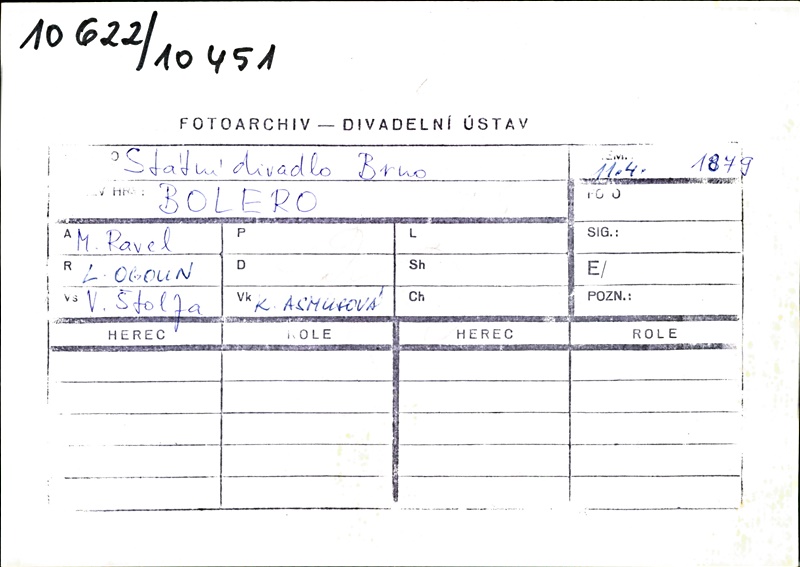 10 622/10 451
FOTOARCHIV — DIVADELNÍ ÚSTAV
Státní divadlo Brno
11.4. 1879
BOLERO
A M. Ravel P L SIG.:
R L. OGOUN D Sh E/
Vs V. Štolfa Vk K. ASMUSOVÁ Ch POZN.:
HEREC ROLE HEREC ROLE